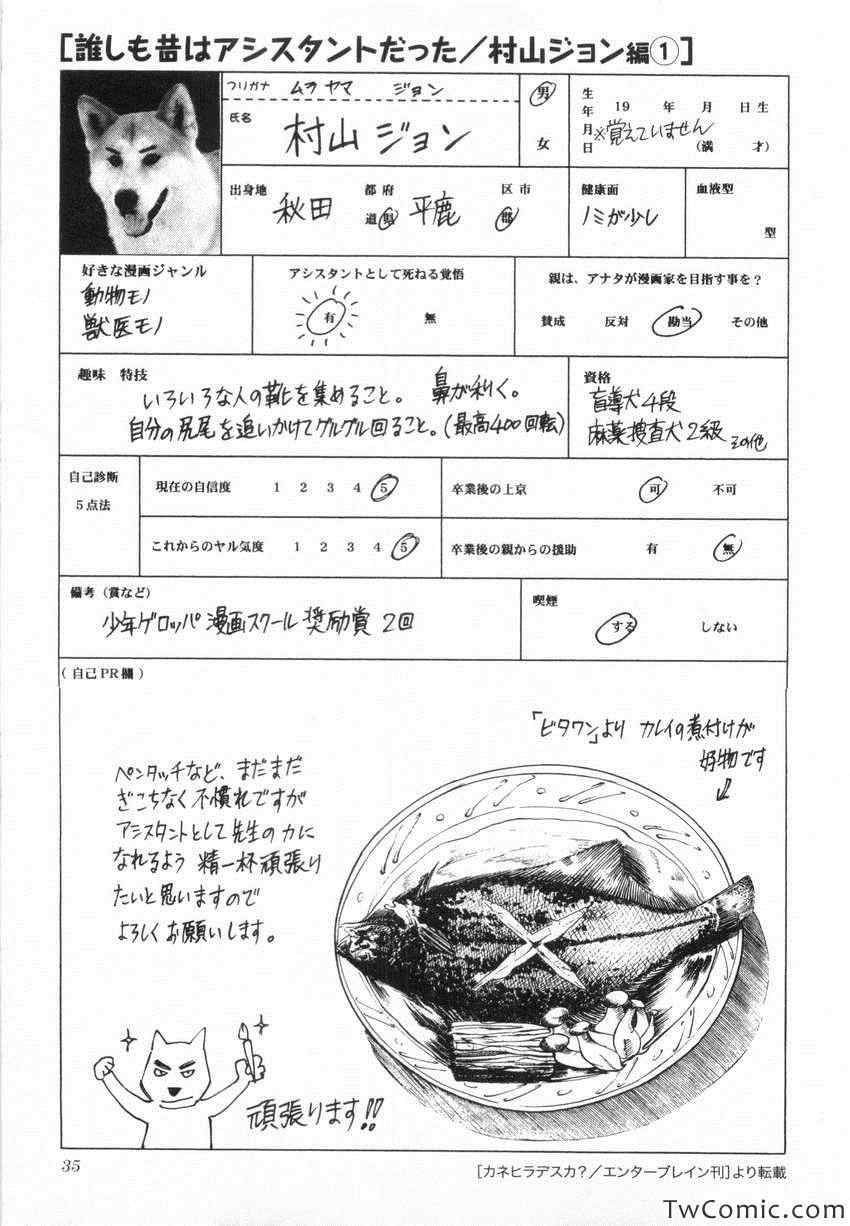 [誰しも昔はアシスタントだった／村山ジョン編①]
フリガナ ムラ ヤマ ジョン
氏名 村山 ジョン
男
女
生年月日 19 年 月 日生
※覚えていません
(満 才)
出身地 秋田 都府道県 平鹿 区市郡
健康面
ノミが少し
血液型
型
好きな漫画ジャンル
動物モノ
獣医モノ
アシスタントとして死ねる覚悟
有 無
親は、アナタが漫画家を目指す事を？
賛成 反対 勘当 その他
趣味 特技
いろいろな人の靴を集めること。 鼻が利く。
自分の尻尾を追いかけてグルグル回ること。(最高400回転)
資格
盲導犬4段
麻薬捜査犬2級 その他
自己診断
5点法
現在の自信度 1 2 3 4 5
卒業後の上京 可 不可
これからのヤル気度 1 2 3 4 5
卒業後の親からの援助 有 無
備考（賞など）
少年ゲロッパ 漫画スクール 奨励賞 2回
喫煙
する しない
（自己PR欄）
「ビタワン」より カレイの煮付けが
好物です
ペンタッチなど、まだまだ
ぎこちなく不慣れですが
アシスタントとして先生の力に
なれるよう 精一杯頑張り
たいと思いますので
よろしくお願いします。
頑張ります!!
35
[カネヒラデスカ？／エンターブレイン刊]より転載
TwComic.com